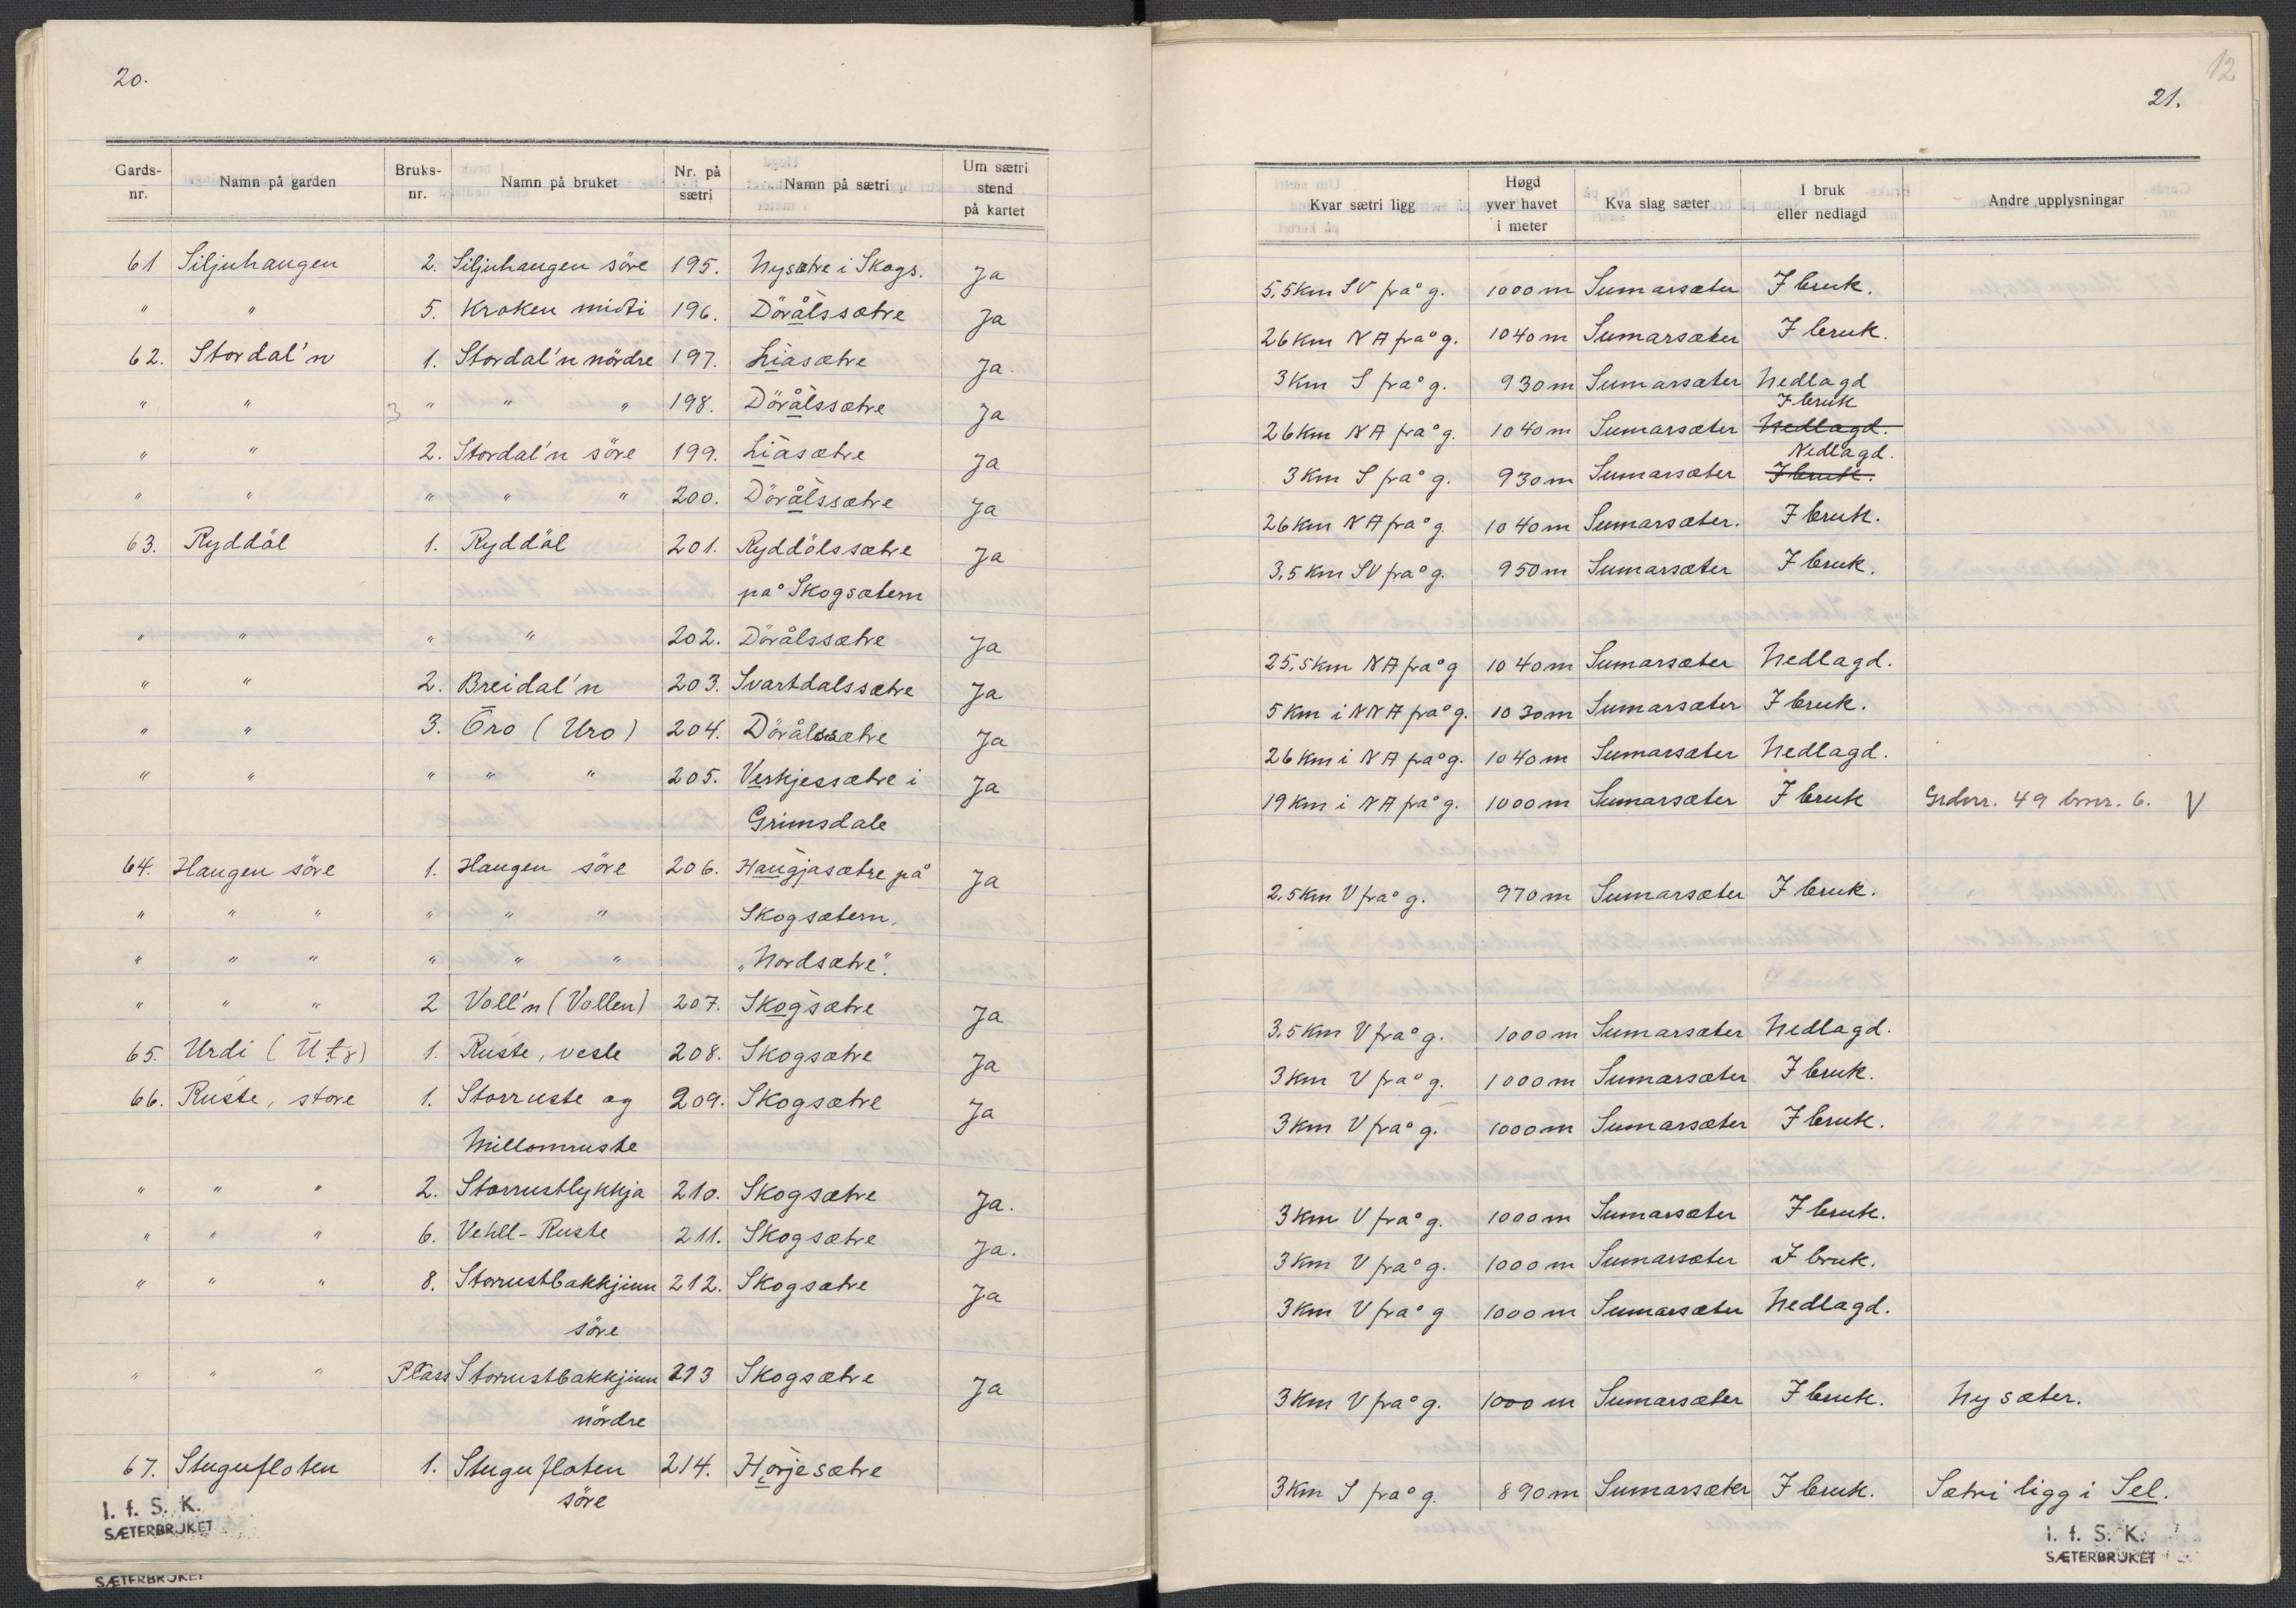 20.
Gards-nr. Namn på garden Bruks-nr. Namn på bruket Nr. på sætri Namn på sætri Um sætri stend på kartet
61 Siljuhaugen 2. Siljuhaugen söre 195. Nysætre i Skogs. Ja
" " 5. Kroken midti 196. Döràlssætre Ja
62. Stordal'n 1. Stordal'n nördre 197. Liasætre Ja.
" " 3 " " " 198. Dörålssætre Ja
" " 2. Stordal'n söre 199. Liasætre Ja
" " " " " 200. Dörålssætre Ja
63. Ryddöl 1. Ryddöl 201. Ryddölssætre Ja
på Skogsætern
" " " " 202. Dörålssætre Ja
" " 2. Breidal'n 203. Svartdalssætre Ja
" " 3. Öro (Uro) 204. Dörålssætre Ja
" " " " " 205. Verkjessætre i Ja
Grimsdale
64. Haugen söre 1. Haugen söre 206. Haugjasætre på Ja
" " " " " " Skogsætern,
" " " " " " "Nordsætre".
" " " 2 Voll'n (Vollen) 207. Skogsætre Ja
65. Urdi 1. Ruste, vesle 208. Skogsætre Ja
66. Ruste, store 1. Storruste og 209. Skogsætre Ja
Millomruste
" " " 2. Storrustlykkja 210. Skogsætre Ja.
" " " 6. Vehll-Ruste 211. Skogsætre Ja.
" " " 8. Storrustbakkjinn 212. Skogsætre Ja
söre
" " " Plass Storrustbakkjinn 213 Skogsætre Ja
nördre
67. Stugufloten 1. Stuguflaten 214. Horjesætre
söre
I. f. S. K.
SÆTERBRUKET
SÆTERBRUKET
12
21.
Kvar sætri ligg Høgd yver havet i meter Kva slag sæter I bruk eller nedlagd Andre upplysningar
5,5 km SV frå g. 1000 m Sumarsæter I bruk.
26 km NA frå g. 1040 m Sumarsæter I bruk.
3 km S frå g. 930 m Sumarsæter Nedlagd
I bruk
26 km NA frå g. 1040 m Sumarsæter Nedlagd.
Nedlagd.
3 km S frå g. 930 m Sumarsæter I bruk.
26 km NA frå g. 1040 m Sumarsæter. I bruk.
3,5 km SV frå g. 950 m Sumarsæter I bruk.
25,5 km NA frå g 1040 m Sumarsæter Nedlagd.
5 km i NNA frå g. 1030 m Sumarsæter I bruk.
26 km i NA frå g. 1040 m Sumarsæter Nedlagd.
19 km i NA frå g. 1000 m Sumarsæter I bruk Grdnr. 49 bnr. 6. V
2,5 km V frå g. 970 m Sumarsæter I bruk.
3,5 km V frå g. 1000 m Sumarsæter Nedlagd.
3 km V frå g. 1000 m Sumarsæter I bruk.
3 km V frå g. 1000 m Sumarsæter I bruk.
3 km V frå g. 1000 m Sumarsæter I bruk.
3 km V frå g. 1000 m Sumarsæter I bruk.
3 km V frå g 1000 m Sumarsæter Nedlagd.
3 km V frå g. 1000 m Sumarsæter I bruk. Ny sæter.
3 km S frå g. 890 m Sumarsæter I bruk. Sætri ligg i Sel.
I. f. S. K.
SÆTERBRUKET